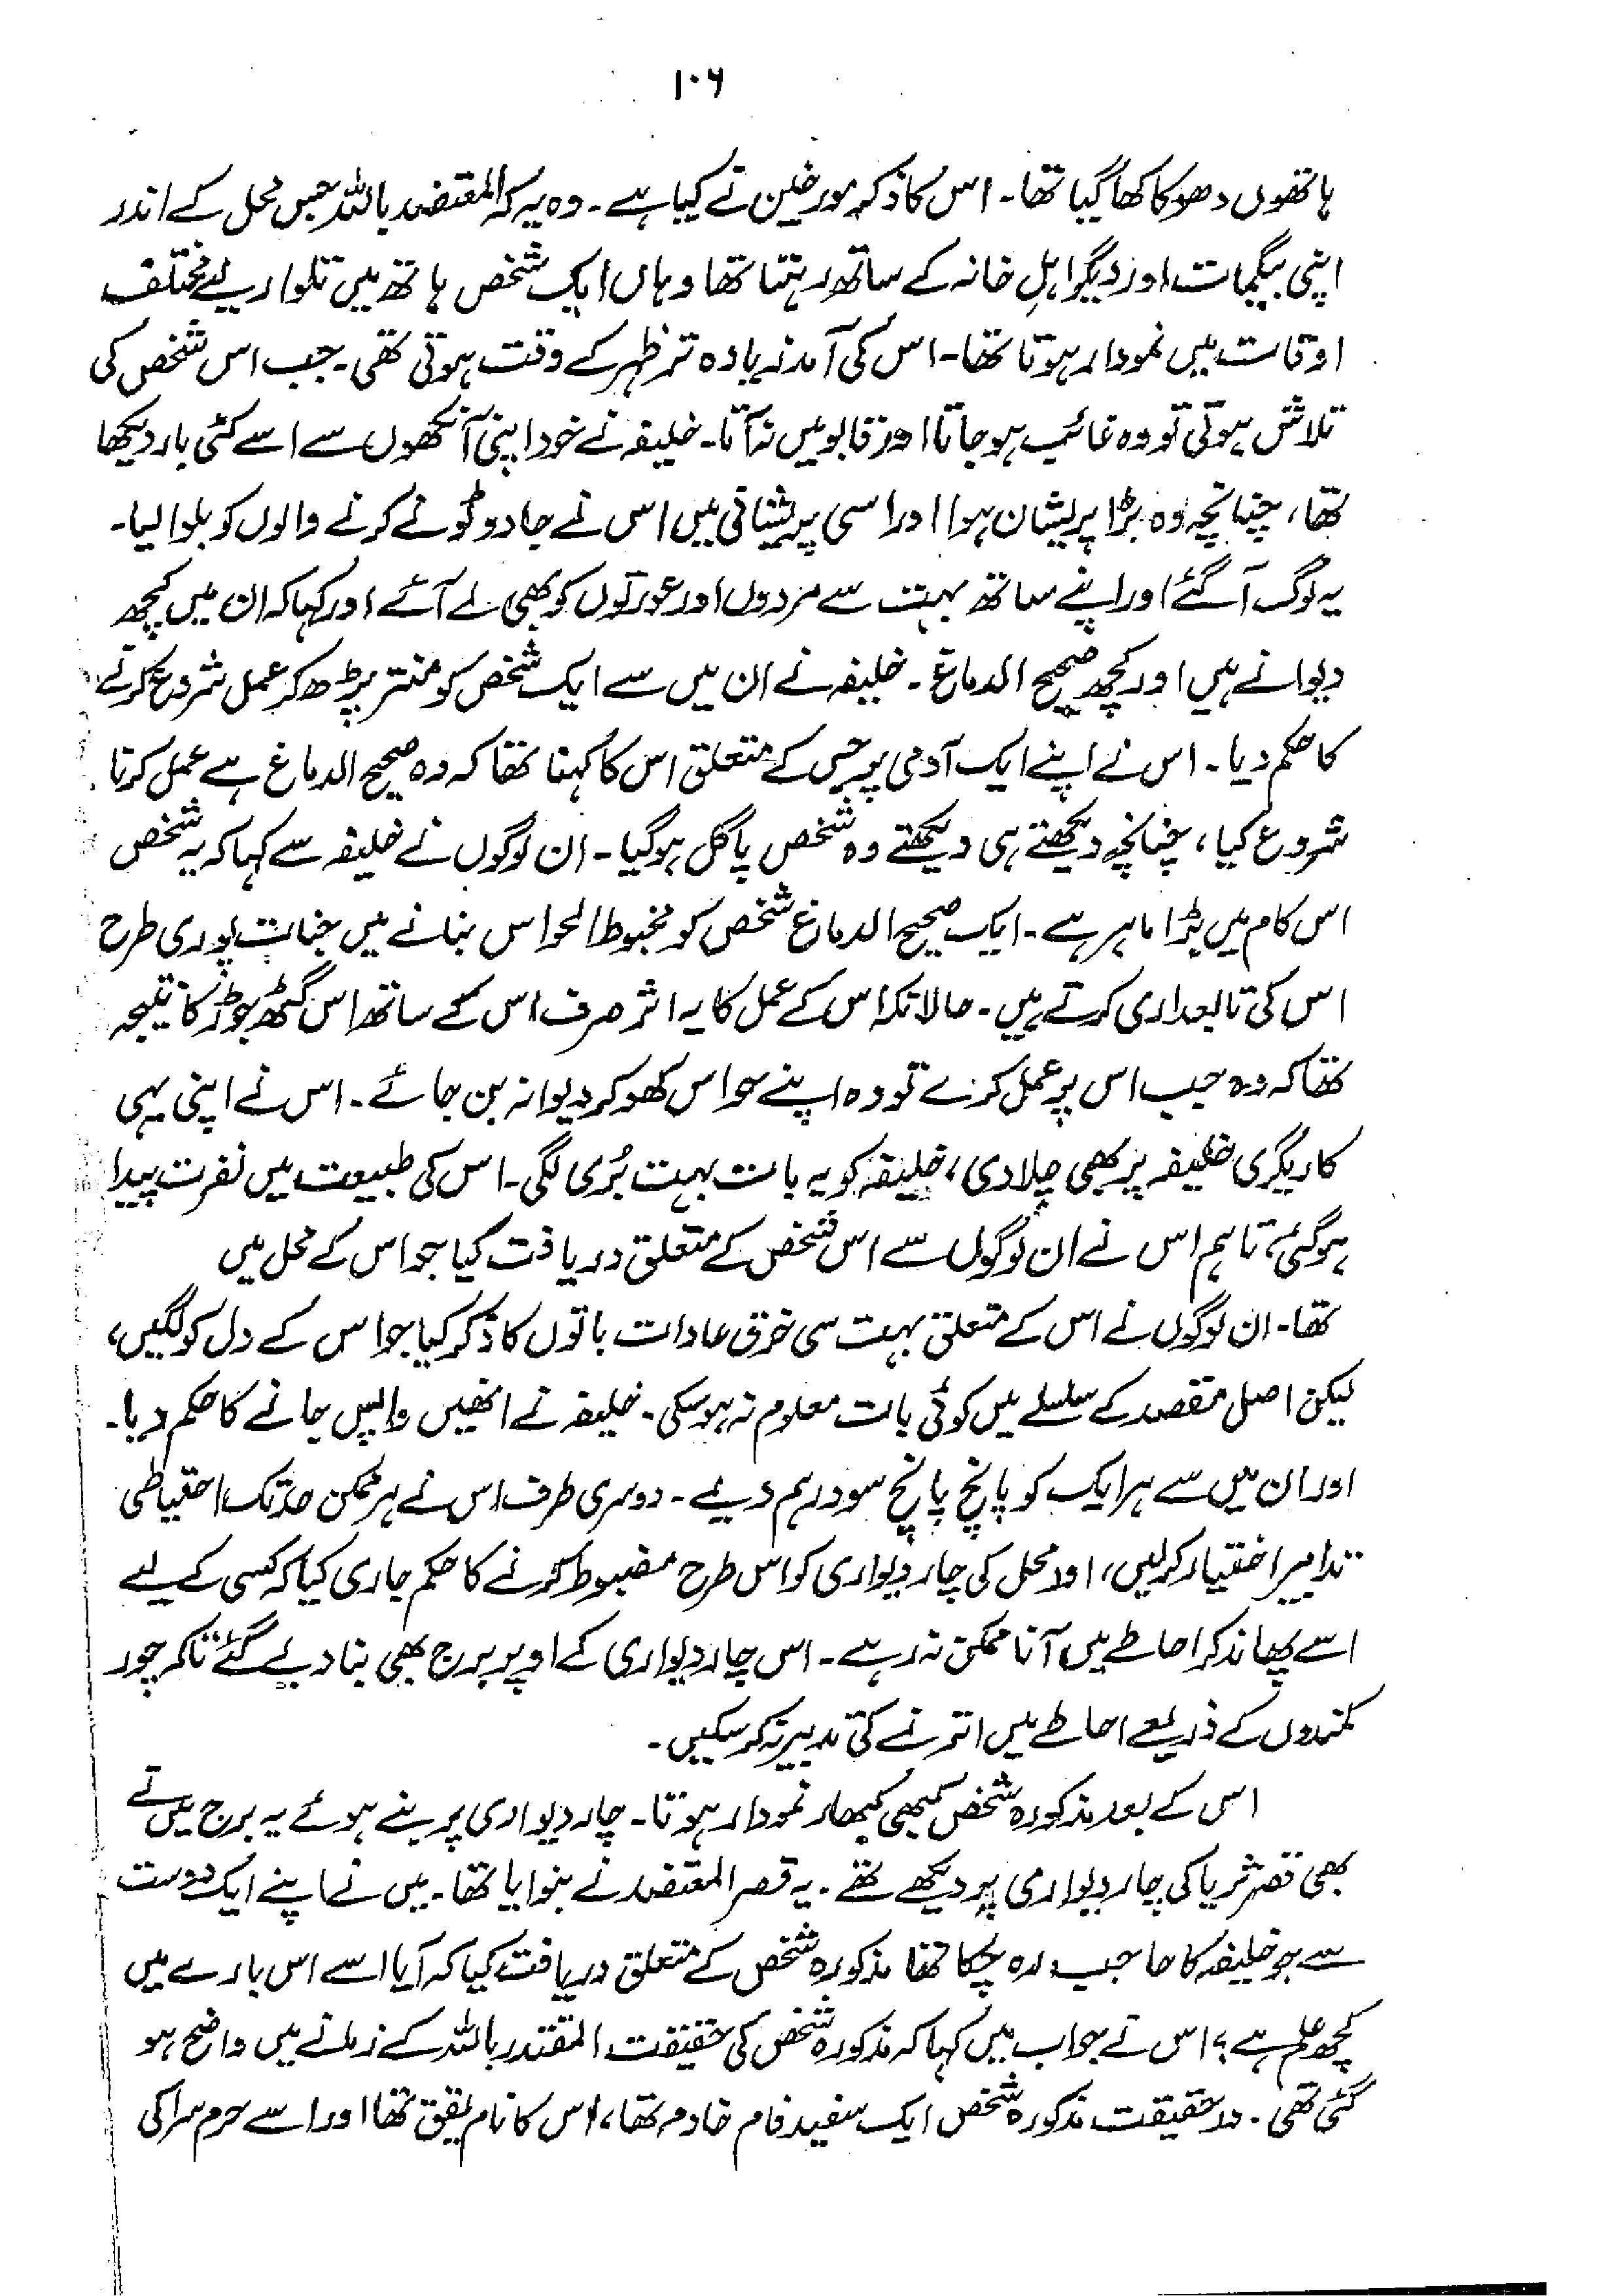 ۱۰۶
ہاتھوں دھوکا کھا گیا تھا۔ اس کا ذکر مورخین نے کیا ہے۔ وہ یہ کہ المعتضد باللہ جس محل کے اندر
اپنی بیگمات اور دیگر اہلِ خانہ کے ساتھ رہتا تھا وہاں ایک شخص ہاتھ میں تلوار لیے مختلف
اوقات میں نمودار ہوتا تھا۔ اس کی آمد زیادہ تر ظہر کے وقت ہوتی تھی۔ جب اس شخص کی
تلاش ہوتی تو وہ غائب ہو جاتا اور قابو میں نہ آتا۔ خلیفہ نے خود اپنی آنکھوں سے اسے کئی بار دیکھا
تھا، چنانچہ وہ بڑا پریشان ہوا اور اسی پریشانی میں اس نے جادو ٹونے کرنے والوں کو بلوا لیا۔
یہ لوگ آ گئے اور اپنے ساتھ بہت سے مردوں اور عورتوں کو بھی لے آئے اور کہا کہ ان میں کچھ
دیوانے ہیں اور کچھ صحیح الدماغ۔ خلیفہ نے ان میں سے ایک شخص کو منتر پڑھ کر عمل شروع کرنے
کا حکم دیا۔ اس نے اپنے ایک آدمی پر جس کے متعلق اس کا کہنا تھا کہ وہ صحیح الدماغ ہے عمل کرنا
شروع کیا، چنانچہ دیکھتے ہی دیکھتے وہ شخص پاگل ہو گیا۔ ان لوگوں نے خلیفہ سے کہا کہ یہ شخص
اس کام میں بڑا ماہر ہے۔ ایک صحیح الدماغ شخص کو مخبوط الحواس بنانے میں جنات پوری طرح
اس کی تابعداری کرتے ہیں۔ حالانکہ اس کے عمل کا یہ اثر صرف اس کے ساتھ اس گٹھ جوڑ کا نتیجہ
تھا کہ وہ جب اس پر عمل کرے تو وہ اپنے حواس کھو کر دیوانہ بن جائے۔ اس نے اپنی یہی
کاریگری خلیفہ پر بھی چلا دی، خلیفہ کو یہ بات بہت بُری لگی۔ اس کی طبیعت میں نفرت پیدا
ہو گئی، تاہم اس نے ان لوگوں سے اس شخص کے متعلق دریافت کیا جو اس کے محل میں
تھا۔ ان لوگوں نے اس کے متعلق بہت سی خرق عادات باتوں کا ذکر کیا جو اس کے دل کو لگیں،
لیکن اصل مقصد کے سلسلے میں کوئی بات معلوم نہ ہو سکی۔ خلیفہ نے انھیں واپس جانے کا حکم دیا۔
اور ان میں سے ہر ایک کو پانچ پانچ سو درہم دیے۔ دوسری طرف اس نے ہر ممکن حد تک احتیاطی
تدابیر اختیار کر لیں، اولا محل کی چار دیواری کو اس طرح مضبوط کرنے کا حکم جاری کیا کہ کسی کے لیے
اسے پھاند کر احاطے میں آنا ممکن نہ رہے۔ اس چار دیواری کے اوپر برج بھی بنا دیے گئے تاکہ چور
کمندوں کے ذریعے احاطے میں اترنے کی تدبیر نہ کر سکیں۔
اس کے بعد مذکورہ شخص کبھی کبھار نمودار ہوتا۔ چار دیواری پر بنے ہوئے یہ برج میں نے
بھی قصر ثریا کی چار دیواری پر دیکھے تھے۔ یہ قصر المعتضد نے بنوایا تھا۔ میں نے اپنے ایک دوست
سے جو خلیفہ کا حاجب رہ چکا تھا مذکورہ شخص کے متعلق دریافت کیا کہ آیا اسے اس بارے میں
کچھ علم ہے؟ اس نے جواب میں کہا کہ مذکورہ شخص کی حقیقت المقتدر باللہ کے زمانے میں واضح ہو
گئی تھی۔ در حقیقت مذکورہ شخص ایک سفید فام خادم تھا، اس کا نام یقق تھا اور اسے حرم سرا کی